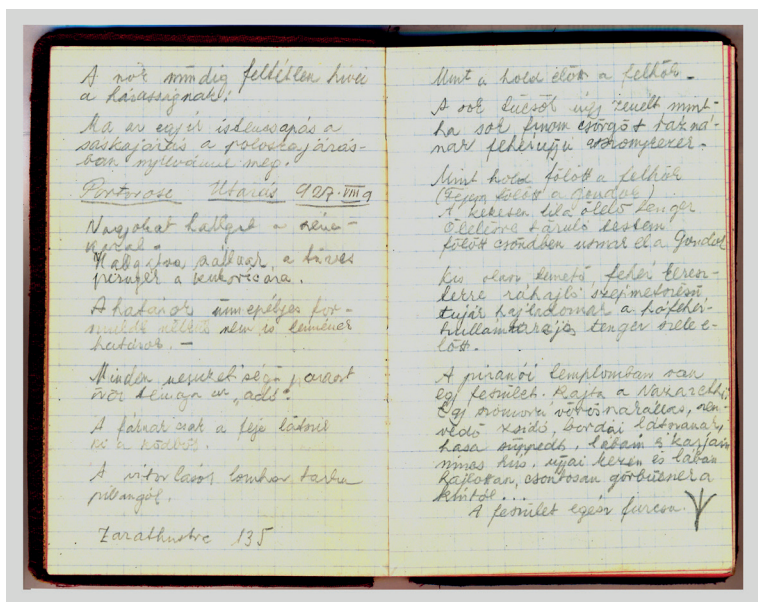 A nők mindig feltétlen hívei
a házasságnak!
Ma az egyéb istencsapás a
sáskajárás a poloskajárás-
ban nyilvánul meg.
Portorose Utazás 927. VIII 9
Nagyokat hallgat a
Hallgatva szállnak, a
a kukoricára.
A határok ünnepélyes for-
nélkül nem is lennének
határok. —
Minden nemzetiségű
"adó"
A fáknak csak a feje látszik
ki a ködből.
A vitorlások lomha tarka
pillangók.
Zarathustra 135
Mint a hold előtt a felhők -
A sok tücsök úgy zenélt mint-
ha sok finom csörgőt rázná-
nak fehérujjú asszonykezek -
Mint hold fölött a felhők
(Fejem fölött a gondok)
A kékesen lila ölelő tenger
ölelésre táruló testem
fölött csöndben úsznak el a Gondok
Kis olasz temető fehér keresz-
tekre ráhajló szépmetszésű
tujái hajladoznak a hófehér-
hullámtarajos tenger szele e-
lőtt.
A piranói templomban van
egy feszület. Rajta a Názáreti.
Egy szomorú vörösnarancsas, szen-
vedő zsidó, bordái látszanak,
hasa süppedt, lábain s karjain
nincs hús, ujjai kezén és lábán
kajlottan, csontosan görbülnek a
kíntól ...
A feszület egész furcsa.